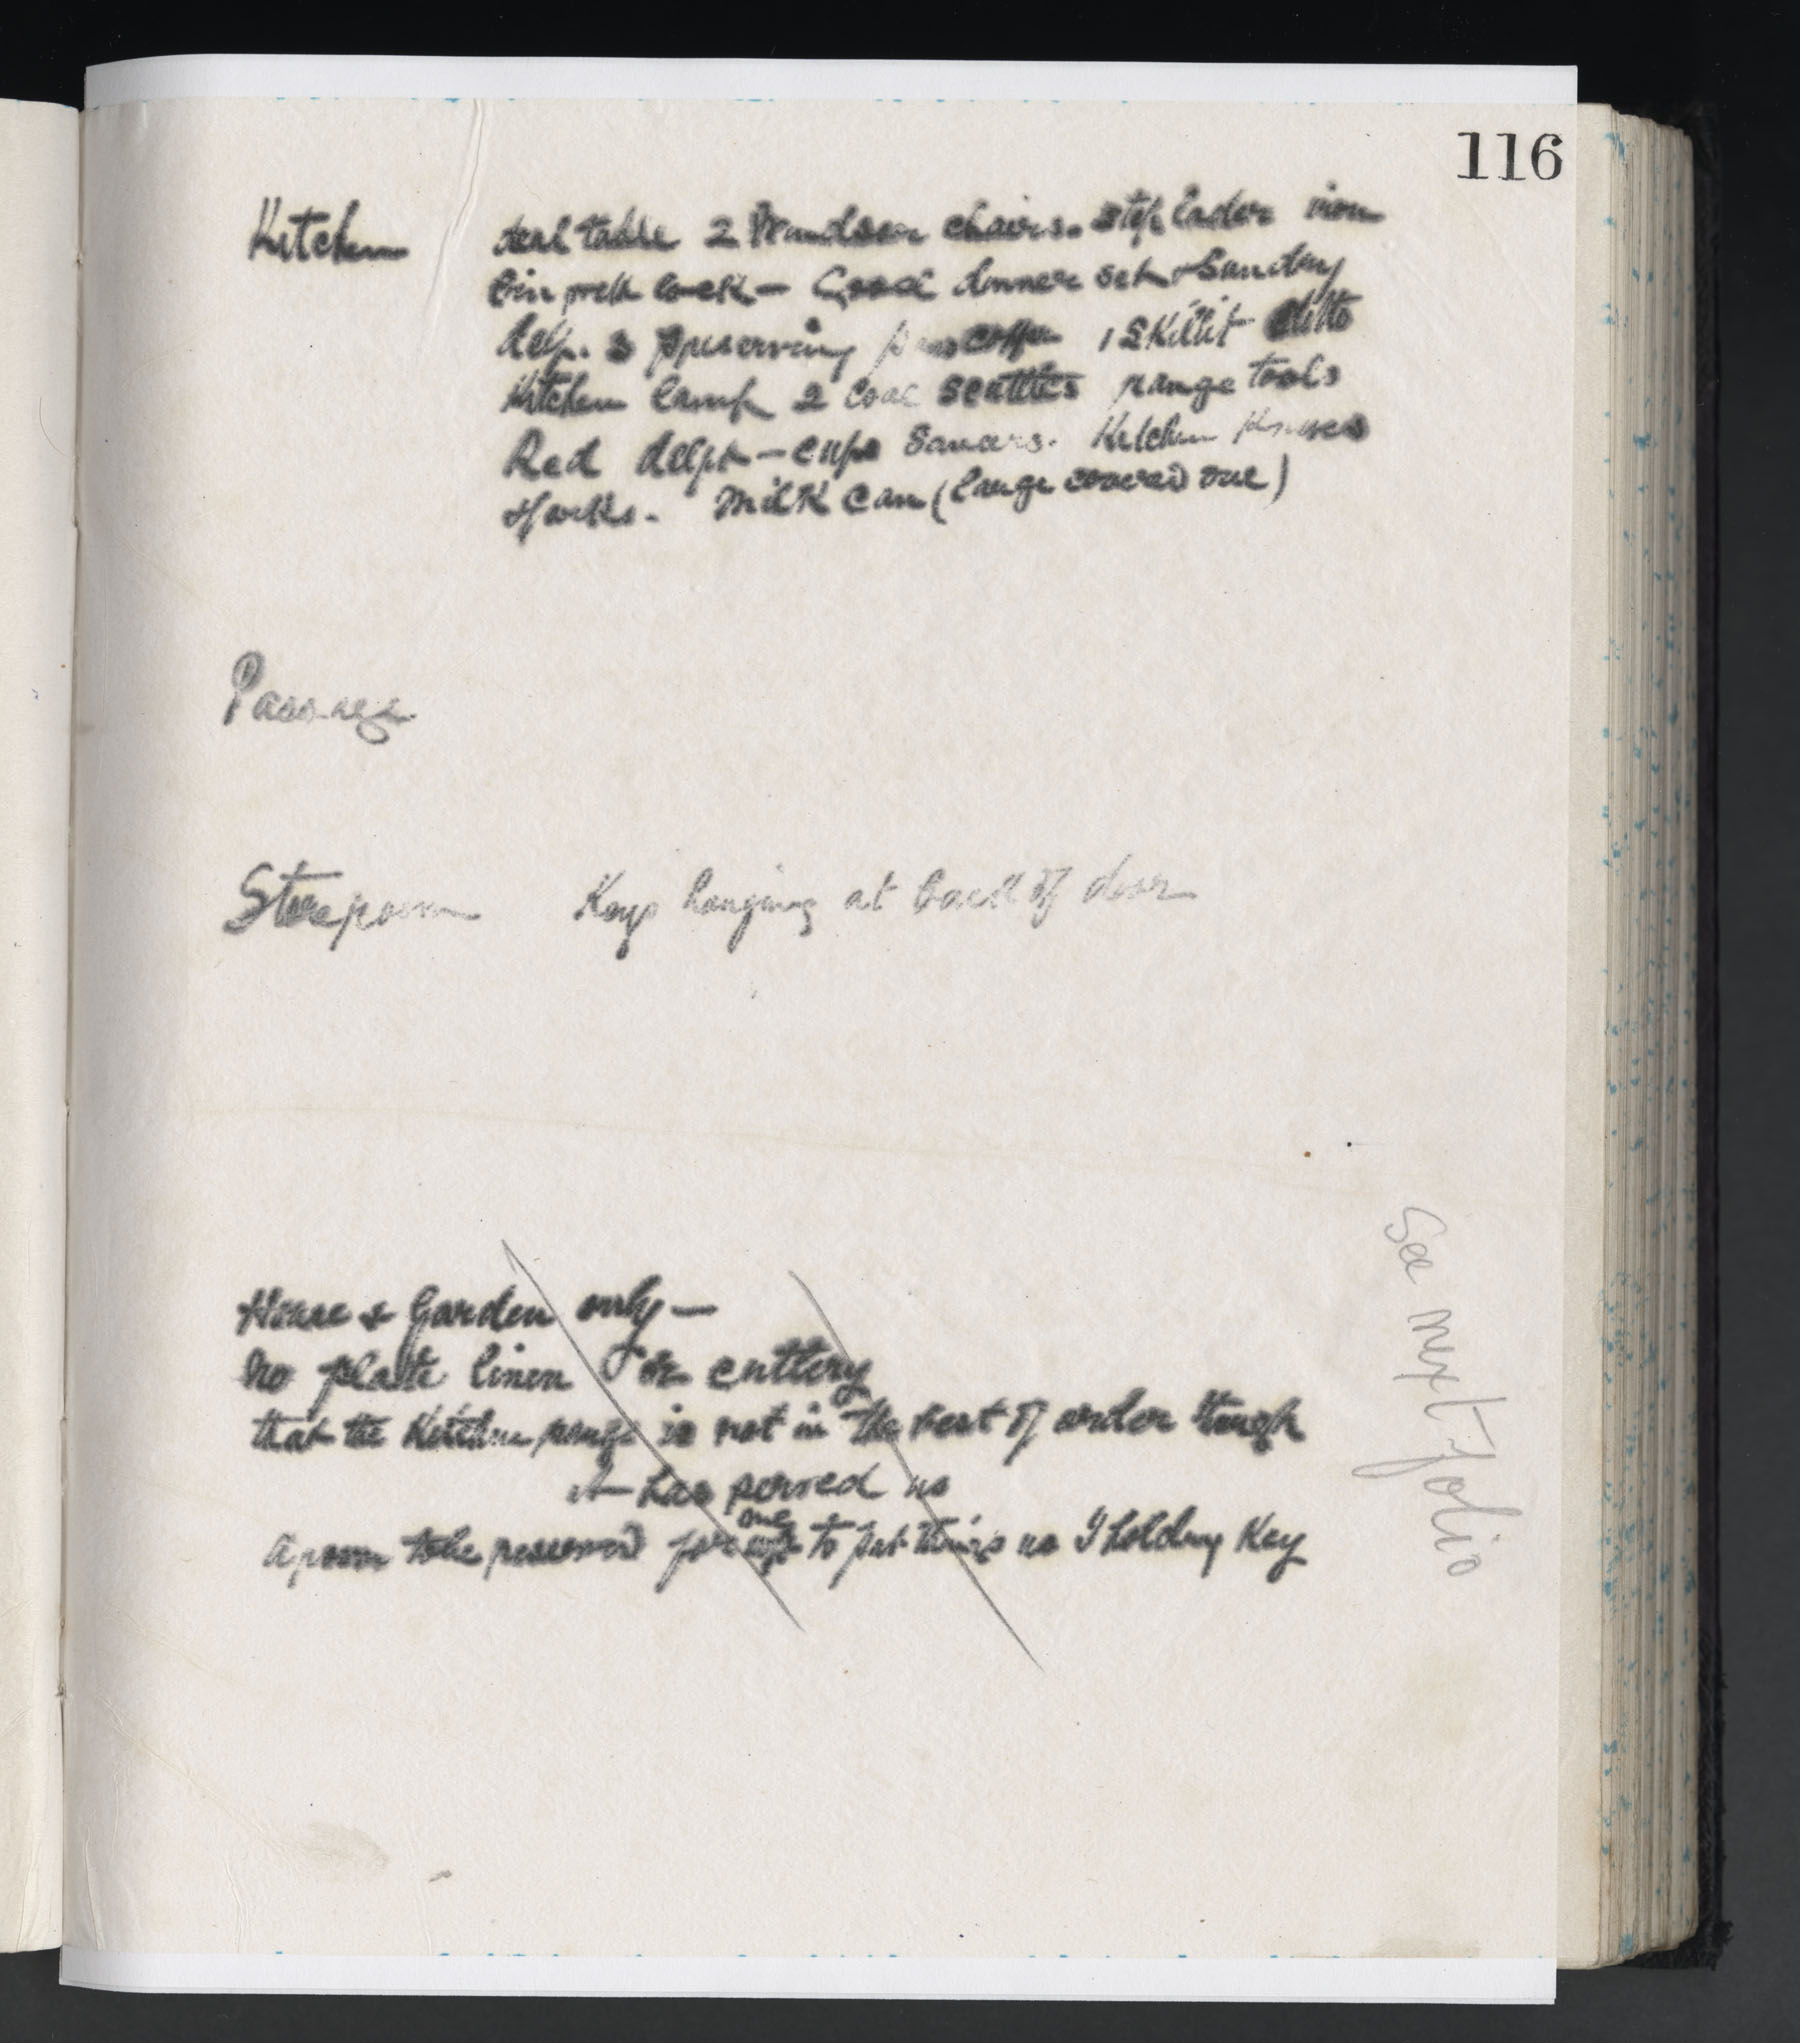 116
Kitchen deal table 2 Windsor chairs. step lader iron
bin with lock - Good dinner set & Sunday
delp. 3 preserving pans copper 1 Skillit ditto
Kitchen lamp 2 Coal Scuttles range tools
Red delph - cups Saucers. Kitchen Knives
& forks. Milk Can (large covered one)
Passage
Storeroom Keys hanging at back of door
House & Garden only -
no plate linen or cutlery
that the Kitchen range is not in the best of order though
it has served us
A room to be reserved for me to put things us I holding Key
See next folio